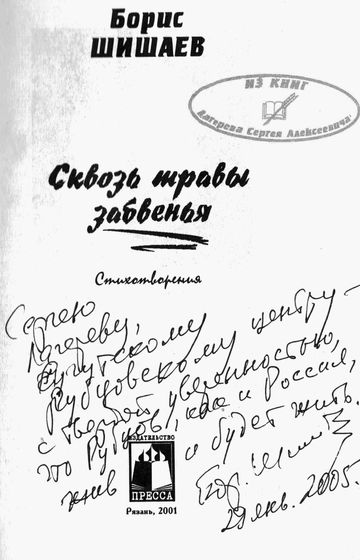 Борис
ШИШАЕВ
ИЗ КНИГ
Лагерева Сергея Алексеевича
Сквозь травы
забвенья
Стихотворения
Сергею
Лагереву,
Сургутскому
Рубцовскому центру -
с твердой уверенностью,
что Рубцов, как и Россия,
жив и будет жить.
ИЗДАТЕЛЬСТВО
ПРЕССА
Рязань, 2001
янв. 2005